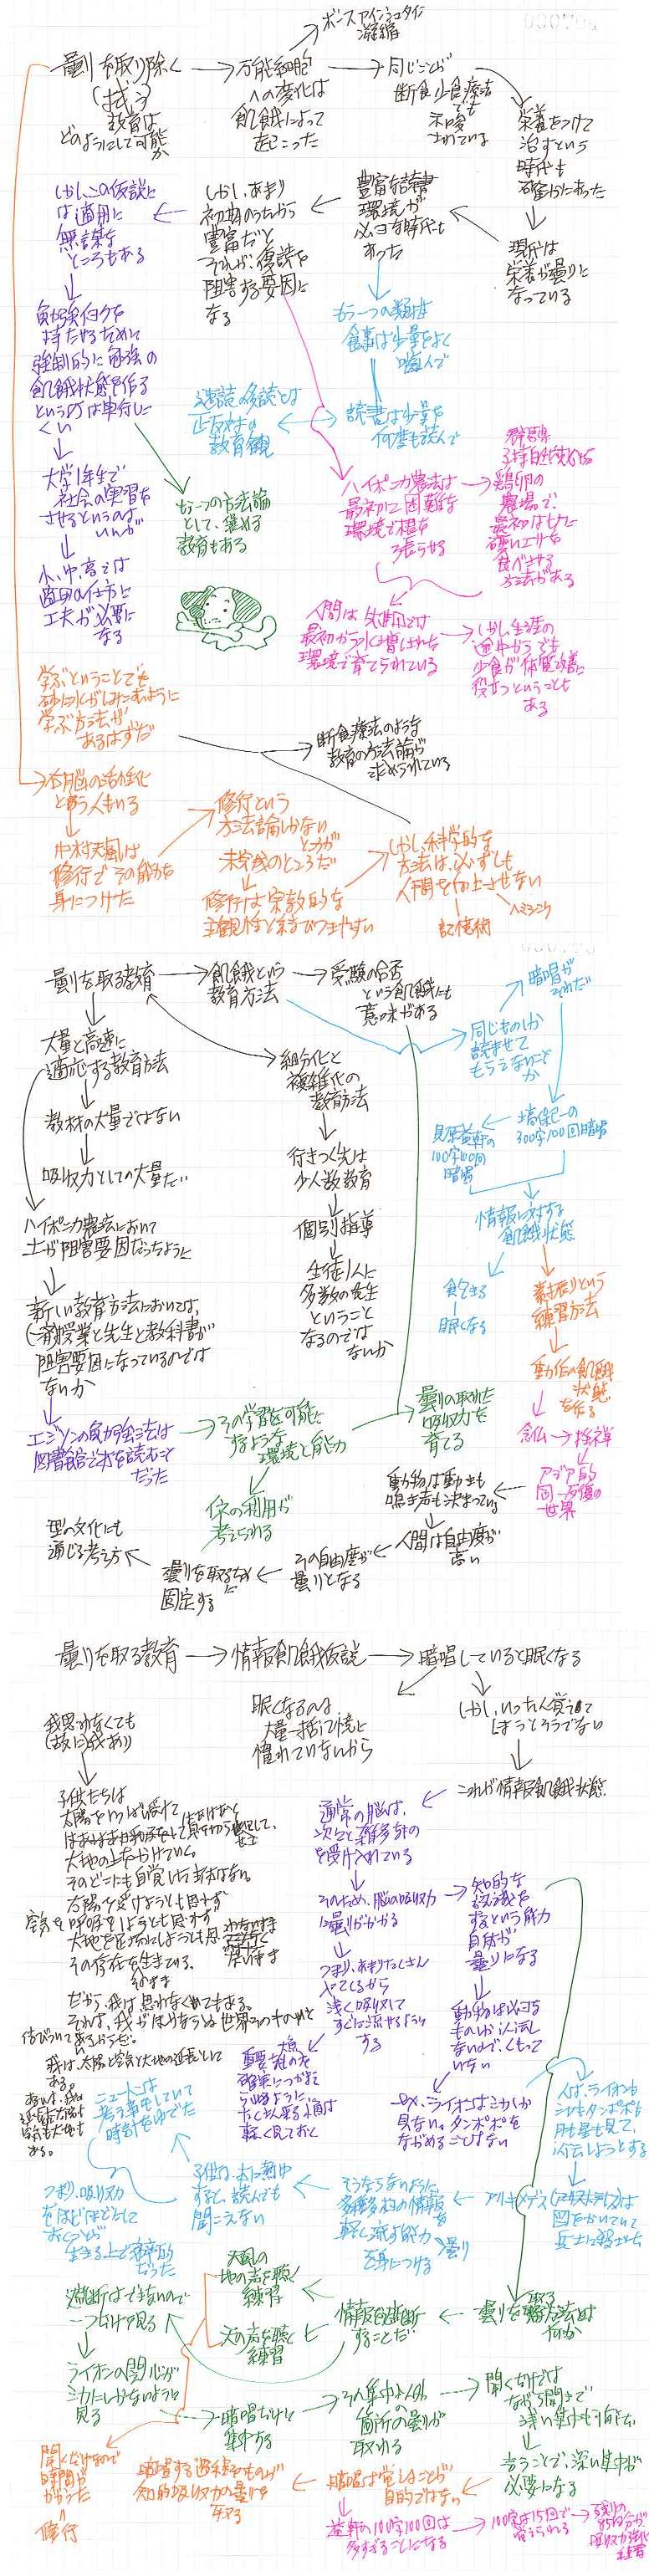 ボースアインシュタイン
凝縮
曇りを取り除く
(拭う)
教育は
どのようにして可能
か
万能細胞
への変化は
飢餓によって
起こった
同じことが
断食少食療法
でも
示唆
されている
栄養をつけて
治すという
時代も
確かにあった
現代は
栄養が曇りに
なっている
豊富な読書
環境が
必要な時代も
あった
しかし、あまり
初期のうちから
豊富だと
それが、復読を
阻害する要因に
なる
しかしこの仮説に
は適用に
無謀な
ところもある
勉強保欲を
持たせるために
強制的に勉強の
飢餓状態を作る
というのは実行しに
くい
大学1年生で
社会の実習を
させるというのは
いいが
小、中、高では
適用の仕方に
工夫が必要に
なる
もう一つの方法論
として、薀める
教育もある
もう一つの類推
食事は少量をよく
噛んで
読書は少量を
何度も読んで
速読の多読とは
正反対の
教育観
ハイポニカ農法は
最初に困難な
環境で根を
張らせる
鶏卵の
農場で、
最初はヒナに
硬いエサを
食べさせる
方法がある
人間は先進国では
最初から水増しされた
環境で育てられている
しかし生涯の
途中からでも
少食が体質改善に
役立つということも
ある
学ぶということでも
砂に水がしみこむように
学ぶ方法が
あるはずだ
断食療法のような
教育の方法論が
求められている
右脳の活性化
と言う人もいる
中村天風は
修行でその能力を
身につけた
修行という
方法論しかない
ところが
未完成のところだ
修行は宗教的な
主観性と結びつきやすい
しかし科学的な
方法は、必ずしも
人間を向上させない
記憶術
ヘミシンク
曇りを取る教育
飢餓という
教育方法
受験の合否
という飢餓にも
意味がある
同じものしか
読ませて
もらえないこと
か
暗唱が
それだ
塙保己一の
300字100回暗唱
貝原益軒の
100字100回
暗唱
情報に対する
飢餓状態
飽きる
眠くなる
素振りという
練習方法
動作の飢餓
状態
を作る
念仏
座禅
アジア的
同一反復の
世界
大量と高速に
適応する教育方法
教材の大量ではない
吸収力としての大量だ
ハイポニカ農法において
土が阻害要因だったように
新しい教育方法においては、
(一斉)授業と先生と教科書が
阻害要因になっているのでは
ないか
エジソンの勉強法は
図書館で本を読むこと
だった
細分化と
複雑化の
教育方法
行きつく先は
少人数教育
個別指導
生徒1人に
多数の先生
ということ
なるのでは
ないか
その学習を可能に
するような
環境と能力
曇りの取れた
吸収力を
育てる
動物は動きも
鳴き声も決まっている
人間は自由度が
高い
その自由度が
曇りとなる
曇りを取るために
固定する
型の文化にも
通じる考え方
曇りを取る教育
情報飢餓仮説
暗唱していると眠くなる
眠くなるのは
大量一括記憶に
慣れていないから
しかし、いったん覚えて
しまうとそうでない
これが情報飢餓状態
我思わなくても
(故に)我あり
子供たちは
太陽をいっぱい受けて
大地の上をかけていく
そのどこにも自覚した部分はない。
太陽を受けようとも思わず
空気を呼吸をしようとも思わず
大地を足がかりにしようとも思わないまま
その存在を生きている。
だから、我は思わなくてもある。
我は、太陽と空気と大地の延長として
ある。
通常の脳は、
次々と雑多なもの
を受け入れている
そのため、脳の吸収力
に曇りがかかる
つまり、あまりたくさん
入ってくるから
浅く吸収して
すぐに流せるように
する
知的な
認識を
するという能力
自体が
曇りになる
動物は必要な
ものしか認識し
ないので、くもって
いない
ex.ライオンはシカしか
見ない。タンポポを
ながめることはない
人は、ライオンも
シカもタンポポも
月も星も見て、
認識しようとする
アルキメデス(アリストテレス)は
図をかいていて
兵士に殺された
そうならないように
多種多様の情報を
軽く流す能力
を身につける
曇り
子供は、本に熱中
すると、読んでも
聞こえない
ニュートンは
考え事をしていて
時計をゆでた
つまり、吸収力
をほどほどにして
おくことが
生きる上で効率的
だった
曇りを取る方法は
何か
情報を遮断
することだ
天風の
地の声を聴く
練習
天の声を聴く
練習
遮断はできないので
一つだけを見る
ライオンの関心が
シカにしかないように
見る
暗唱だけに
集中する
その集中以外の
箇所の曇りが
取れる
聞くだけでは
ながら聞きで
浅い集中も可能だ
言うことで、深い集中が
必要になる
暗唱は覚えることが
目的ではない
暗唱する過程そのものが
知的吸収力の曇りを
取る
聞くだけなので
時間が
かかった
修行
益軒の100字100回は
多すぎることになる
100字は15回で
覚えられる
残りの
85回分が
吸収力強化
練習